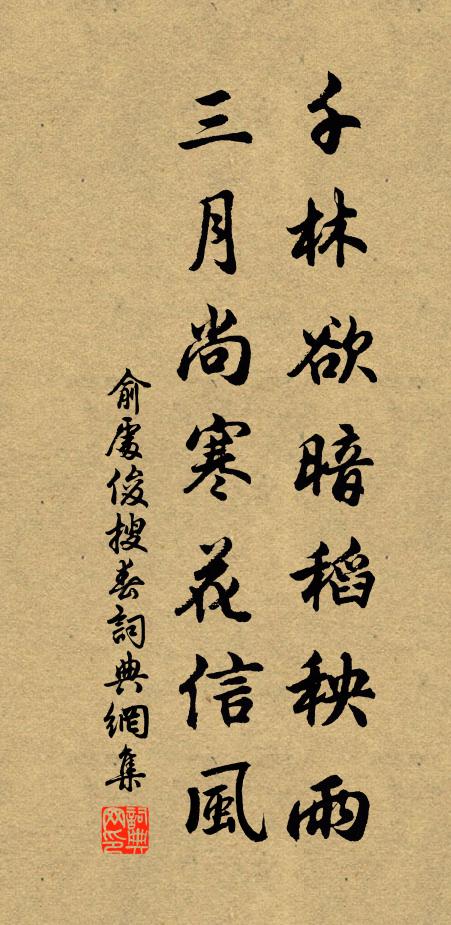 千林欲暗稻秧雨
三月尚寒花信風
俞處俊搜春詞典網集
詞典网印